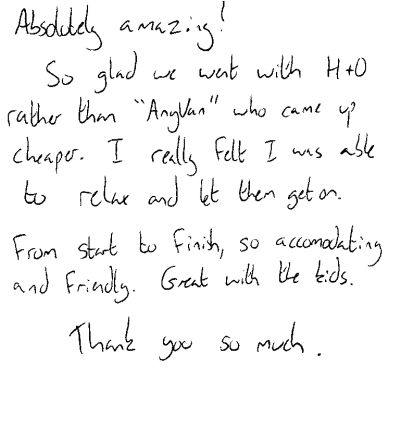 Absolutely amazing!
So glad we went with H+O
rather than "AnyVan" who came up
cheaper. I really felt I was able
to relax and let them get on.
From start to finish, so accomodating
and friendly. Great with the kids.
Thank you so much.